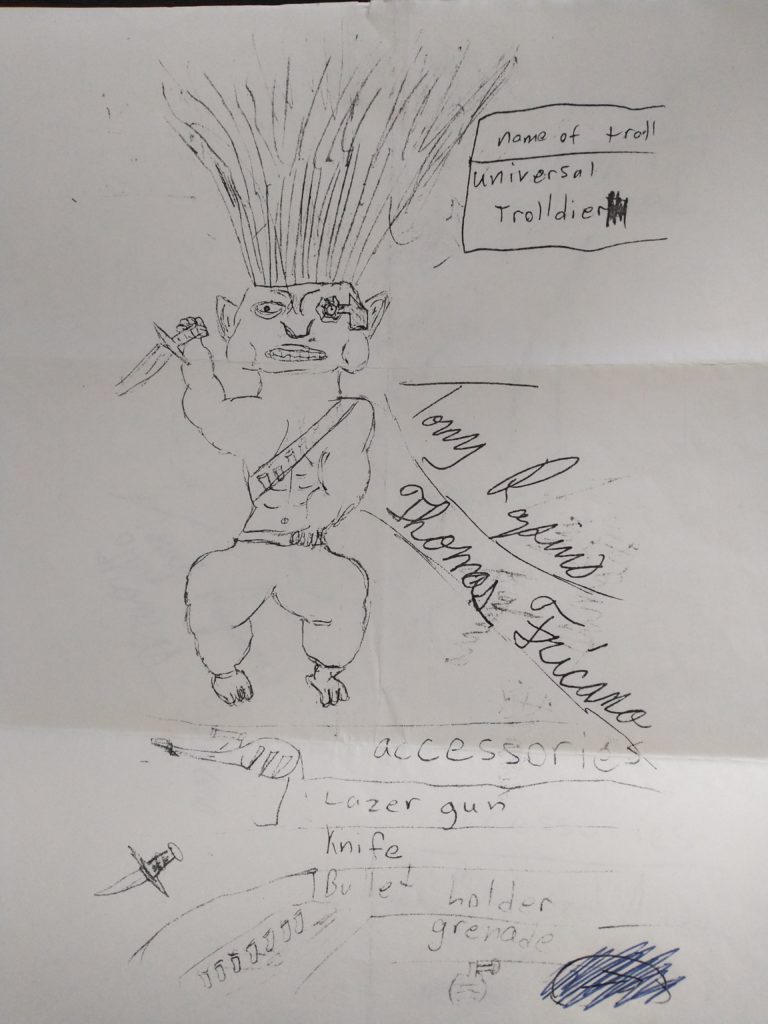 name of troll
universal
Trolldier
Tony
Thomas Fricano
accessories
Lazer gun
Knife
Bullet holder
grenade